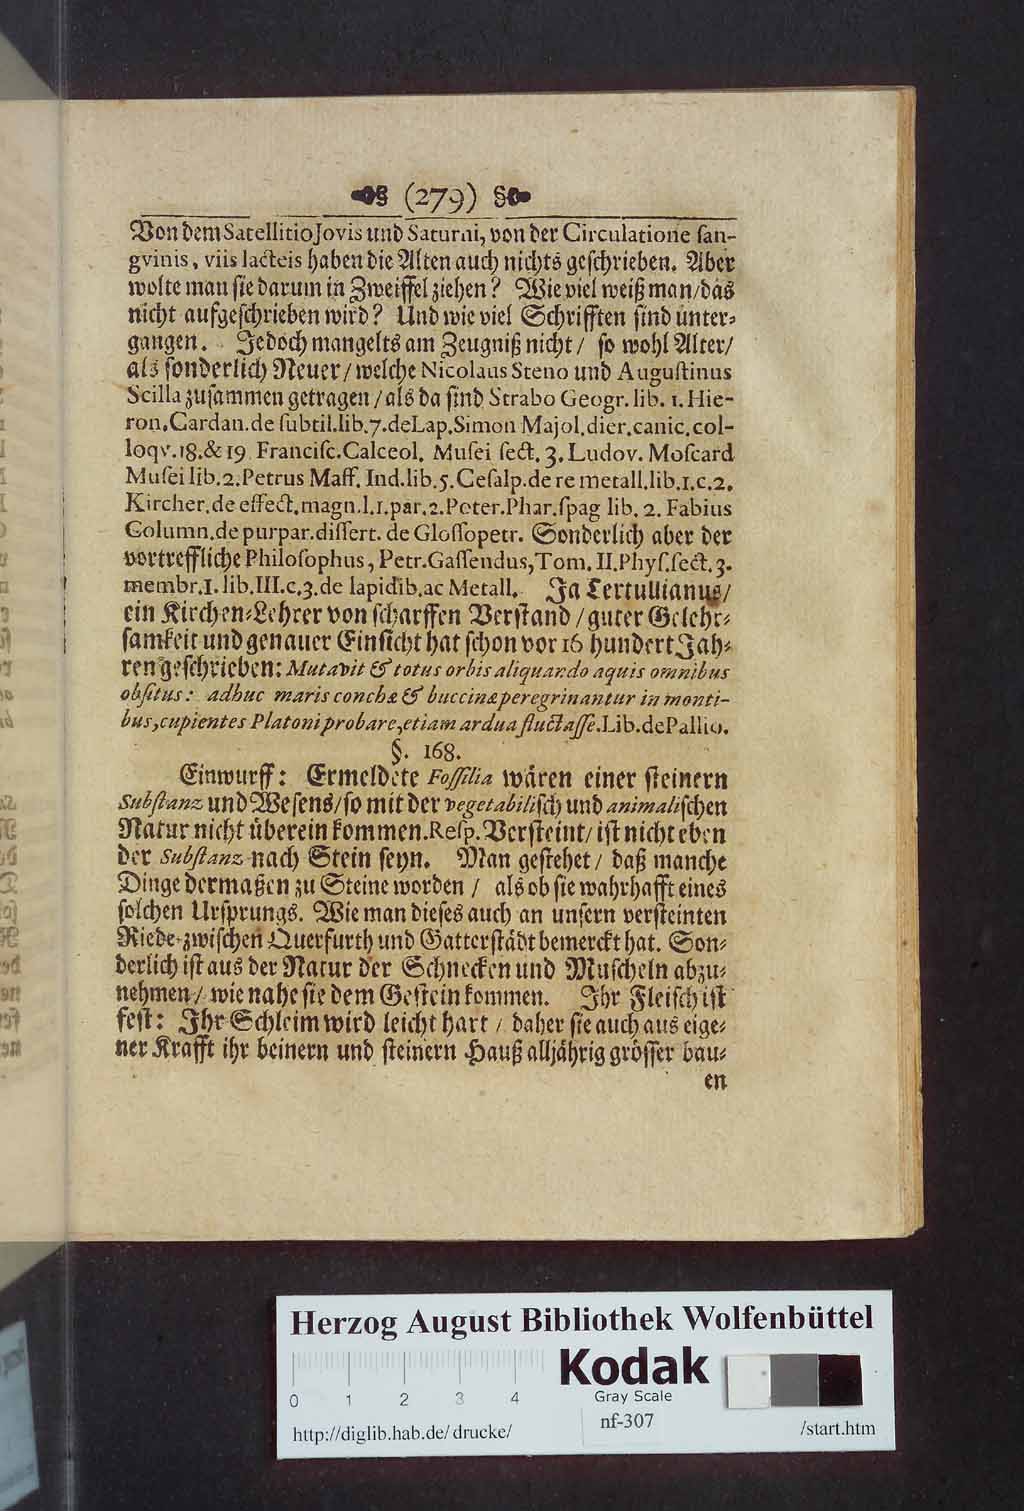 (279)
Von dem Satellitio Jovis und Saturni, von der Circulatione ſan-
gvinis, viis lacteis haben die Alten auch nichts geſchrieben. Aber
wolte man ſie darum in Zweiffel ziehen? Wie viel weiß man/ das
nicht aufgeſchrieben wird? Und wie viel Schrifften ſind unter-
gangen. Jedoch mangelts am Zeugniß nicht/ ſo wohl Alter/
als ſonderlich Neuer/ welche Nicolaus Steno und Auguſtinus
Scilla zuſammen getragen/ als da ſind Strabo Geogr. lib. 1. Hie-
ron. Cardan. de ſubtil. lib. 7. de Lap. Simon Majol. dier. canic. col-
loqv. 18. & 19 Franciſc. Calceol. Muſei ſect. 3. Ludov. Moſcard
Muſei lib. 2. Petrus Maff. Ind. lib. 5. Ceſalp. de re metall. lib. 1. c. 2.
Kircher. de effect. magn. l. 1. par. 2. Peter. Phar. ſpag lib. 2. Fabius
Column. de purpar. diſſert. de Gloſſopetr. Sonderlich aber der
vortreffliche Philoſophus, Petr. Gaſſendus, Tom. II. Phyſ. ſect. 3.
membr. 1. lib. III. c. 3. de lapidib. ac Metall. Ja Tertullianus/
ein Kirchen-Lehrer von ſcharffen Verſtand/ guter Gelehr-
ſamkeit und genauer Einſicht hat ſchon vor 16 hundert Jah-
ren geſchrieben: Mutavit & totus orbis aliquando aquis omnibus
obſitus: adhuc maris conchæ & buccinæ peregrinantur in monti-
bus, cupientes Platoni probare, etiam ardua fluctaſſe. Lib. de Pallio.
§. 168.
Einwurff: Ermeldete Foſſilia wären einer ſteinern
Subſtanz und Weſens/ ſo mit der vegetabiliſch und animaliſchen
Natur nicht überein kommen. Reſp. Verſteint/ iſt nicht eben
der Subſtanz nach Stein ſeyn. Man geſtehet/ daß manche
Dinge dermaßen zu Steine worden/ als ob ſie wahrhafft eines
ſolchen Urſprungs. Wie man dieſes auch an unſern verſteinten
Riede zwiſchen Querfurth und Gatterſtädt bemerckt hat. Son-
derlich iſt aus der Natur der Schnecken und Muſcheln abzu-
nehmen/ wie nahe ſie dem Geſtein kommen. Ihr Fleiſch iſt
feſt: Ihr Schleim wird leicht hart/ daher ſie auch aus eige-
ner Krafft ihr beinern und ſteinern Hauß alljährig gröſſer bau-
en
Herzog August Bibliothek Wolfenbüttel
Kodak
Gray Scale
0 1 2 3 4
nf-307
http://diglib.hab.de/drucke/
/start.htm